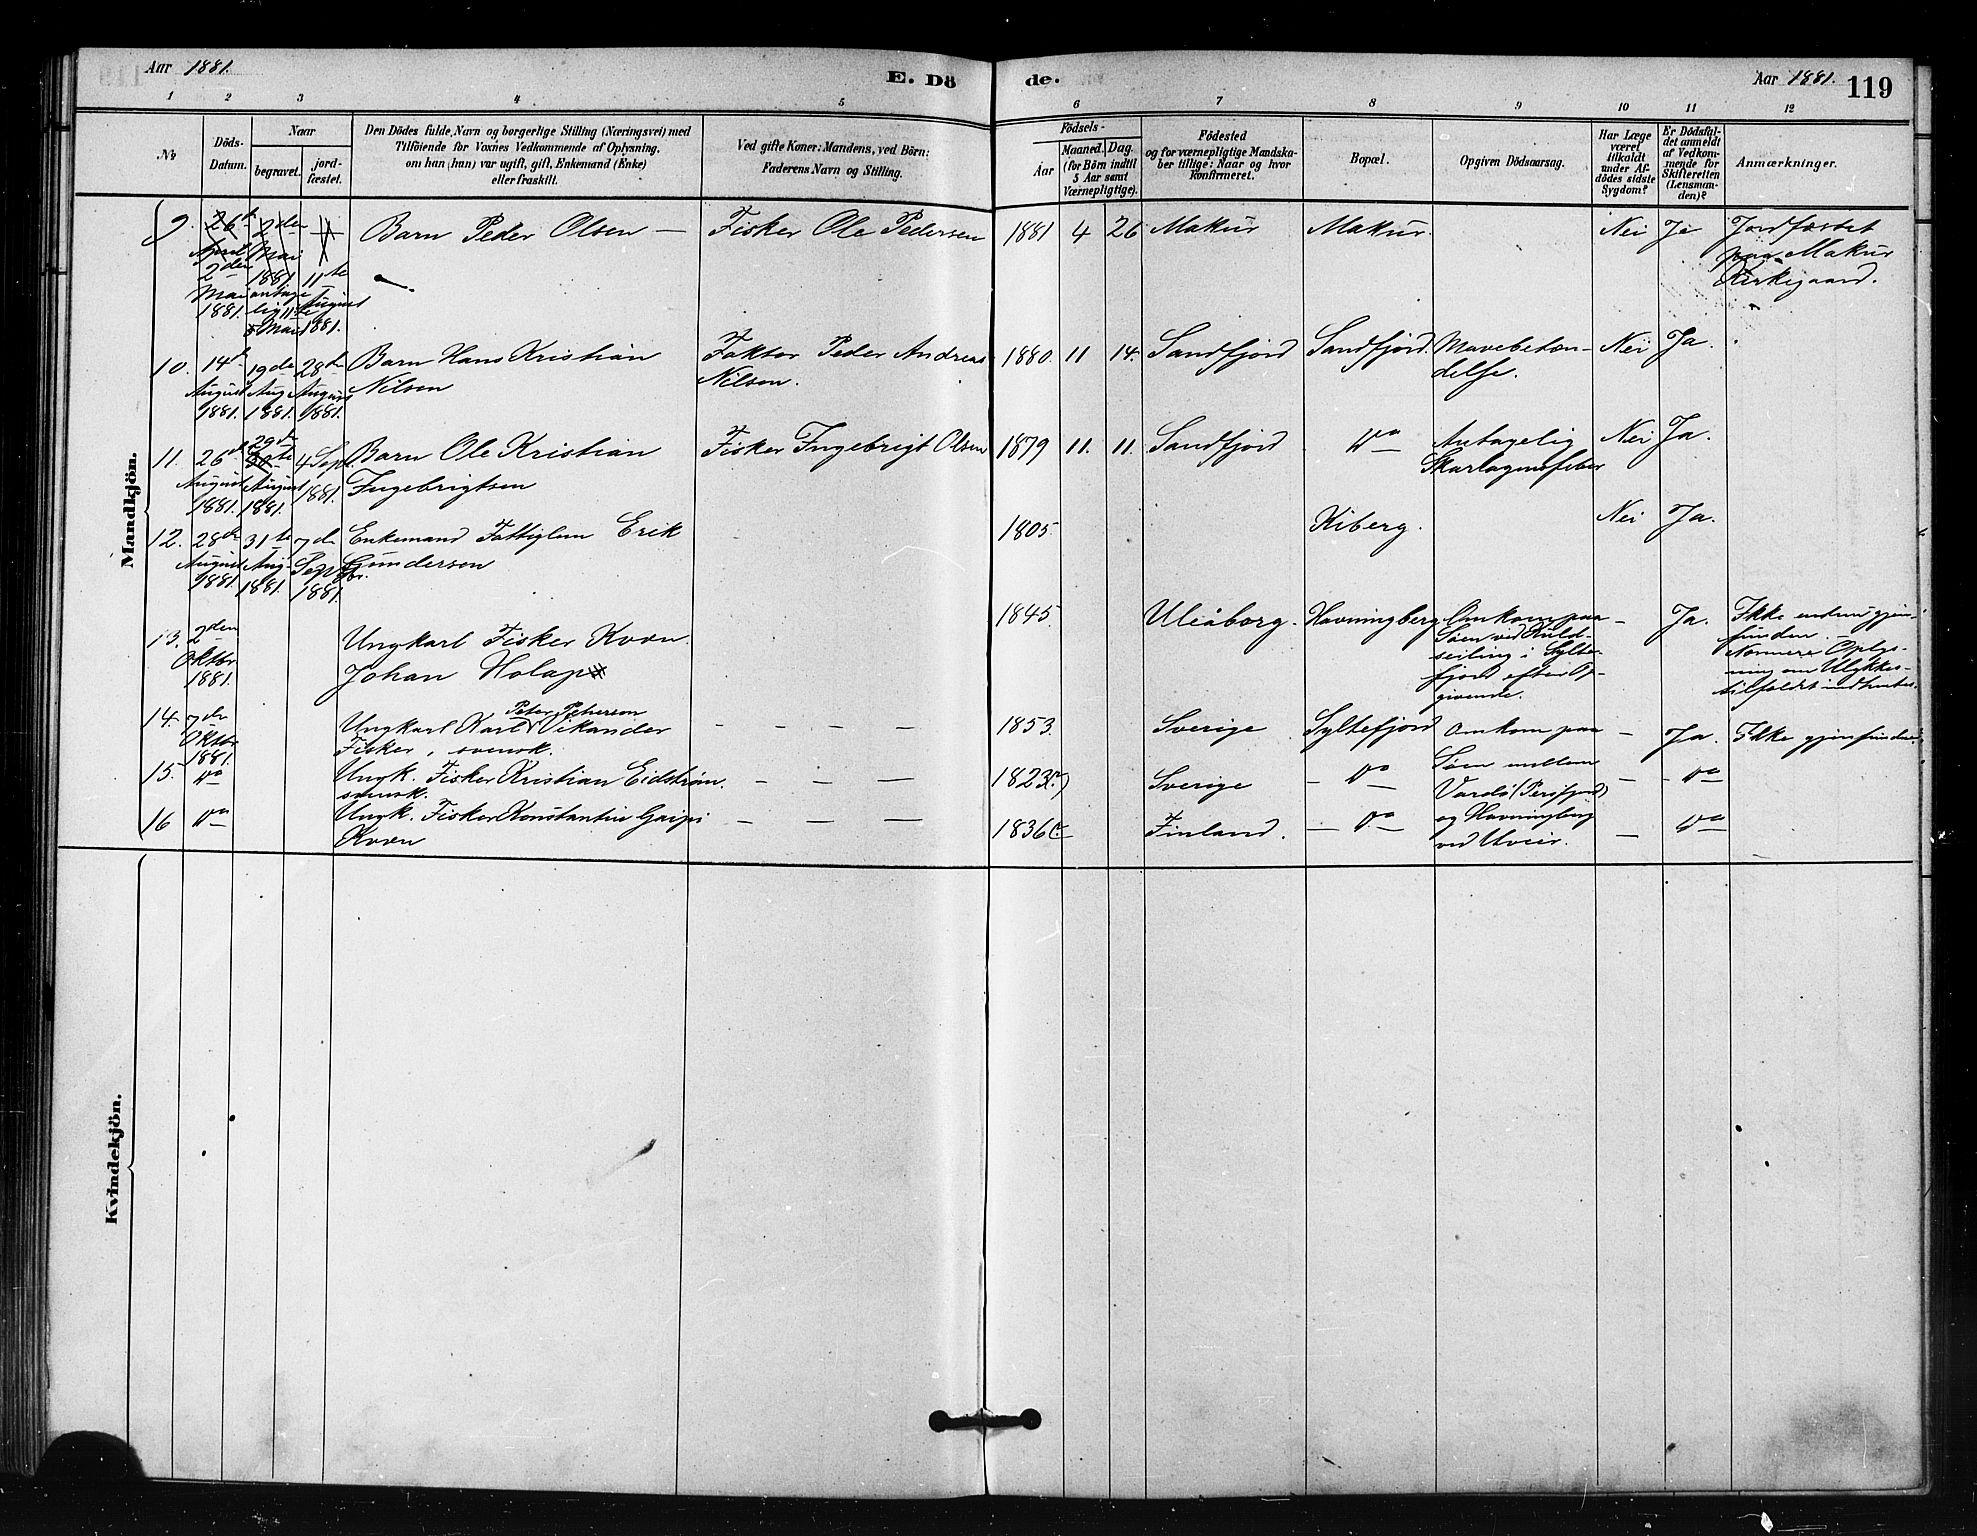 Aar 1881.
E. Dö
de.
Aar 1881.
119
1
2
3
4
5
6
7
8
9
10
11
12
No
Döds-
Datum.
Naar
begravet.
jord-
fæstet.
Den Dödes fulde Navn og borgerlige Stilling (Næringsvei) med
Tilföiende for Voxnes Vedkommende af Oplysning,
om han (hun) var ugift, gift, Enkemand (Enke)
eller fraskilt.
Ved gifte Koner: Mandens, ved Börn:
Faderens Navn og Stilling.
Födsels-
Aar
Maaned.
Dag.
(for Börn indtil
5 Aar samt
Værnepligtige).
Födested
og for værnepligtige Mandska-
ber tillige: Naar og hvor
Konfirmeret.
Bopæl.
Opgiven Dödsaarsag.
Har Læge
været
tilkaldt
under Af-
dödes sidste
Sygdom?
Er Dödsfal-
det anmeldt
af Vedkom-
mende for
Skifteretten
(Lensman-
den)?
Anmærkninger.
Mandkjön.
9.
26
April
2den
Mai
1881.
2den
Mai
1881
antage
lig
Mai
11te
August
1881.
Barn Peder Olsen —
Fisker Ole Pedersen
1881 4 26
Makur
Makur.
Nei
Ja
Jordfæstet
paa Makur
Kirkegaard.
10.
14de
August
1881.
19de
Aug.
1881.
28de
August
1881.
Barn Hans Kristian
Nilsen
Faktor Peder Andreas
Nilsen.
1880. 11 14.
Sandfjord
Sandfjord.
Mavebetæn-
delse.
Nei
Ja.
11.
26de
August
1881.
29de
30te
August
1881.
4 Sept.
1881.
Barn Ole Kristian
Ingebrigtsen
Fisker Ingebrigt Olsen
1879 11. 11.
Sandfjord
Do
Antagelig
Skarlagensfeber
Nei
Ja.
12.
28de
August
1881.
31te
Aug.
1881.
7de
Septbr.
1881.
Enkemand Fattiglem Erik
Gundersen
1805.
Kiberg.
Nei
Ja.
13.
2den
Oktbr
1881.
Ungkarl Fisker Kvæn
Johan Holap
1845.
Uleåborg.
Havningberg.
Omkom paa
Søen ved Kuld-
seiling i Sylte-
fjord efter Op-
givende.
—
Ja.
Ikke endnu gjen-
funden. —
Nærmere Oplys-
ning om Ulykkes-
tilfældet indhentes.
14.
7de
Oktbr
1881.
Peter Peterson
Ungkarl Karl Vikander
Fisker, svensk.
— — — —
1853.
Sverige
Syltefjord
Omkom paa
Søen mellem
Vardö (Persfjord)
og Havningberg
ved Uveir.
—
Ja.
Ikke gjenfunden.
15.
Do
Ungk. Fisker Kristian Eidström.
svensk.
— — —
1823(?)
Sverige
— Do —
—
— Do —
16
Do
Ungk. Fisker Konstantin
Kvæn
— — —
1836
Finland.
— Do —
—
Do
Kvindekjön.